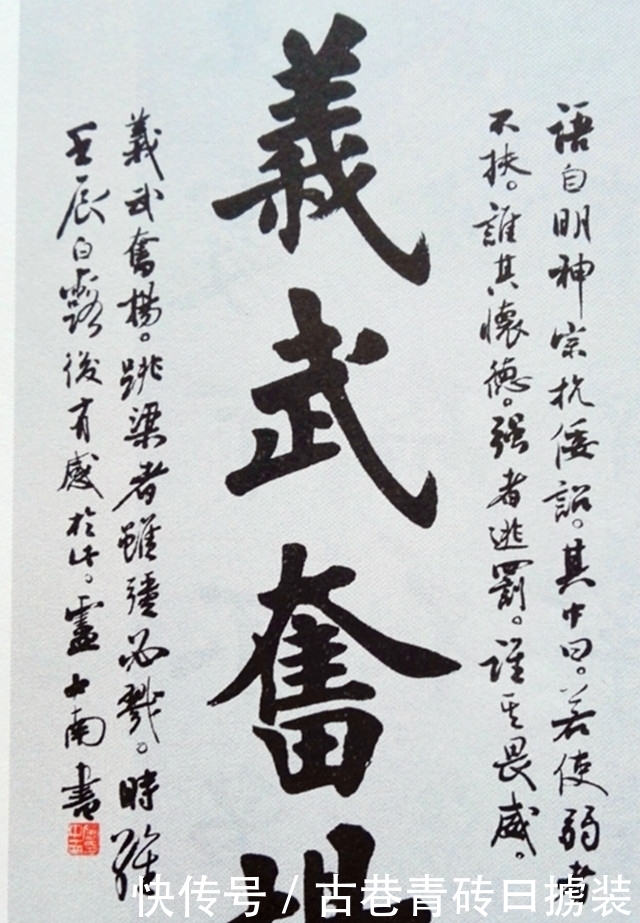 語自明神宗抗倭詔。其中曰。若使弱者
不扶。誰其懷德。强者逃罰。誰其畏威。
義武奮
義武奮揚。跳梁者雖彊必戮。時維
壬辰白露後有感於此。盧中南書
快传号 / 古巷青砖日掳装